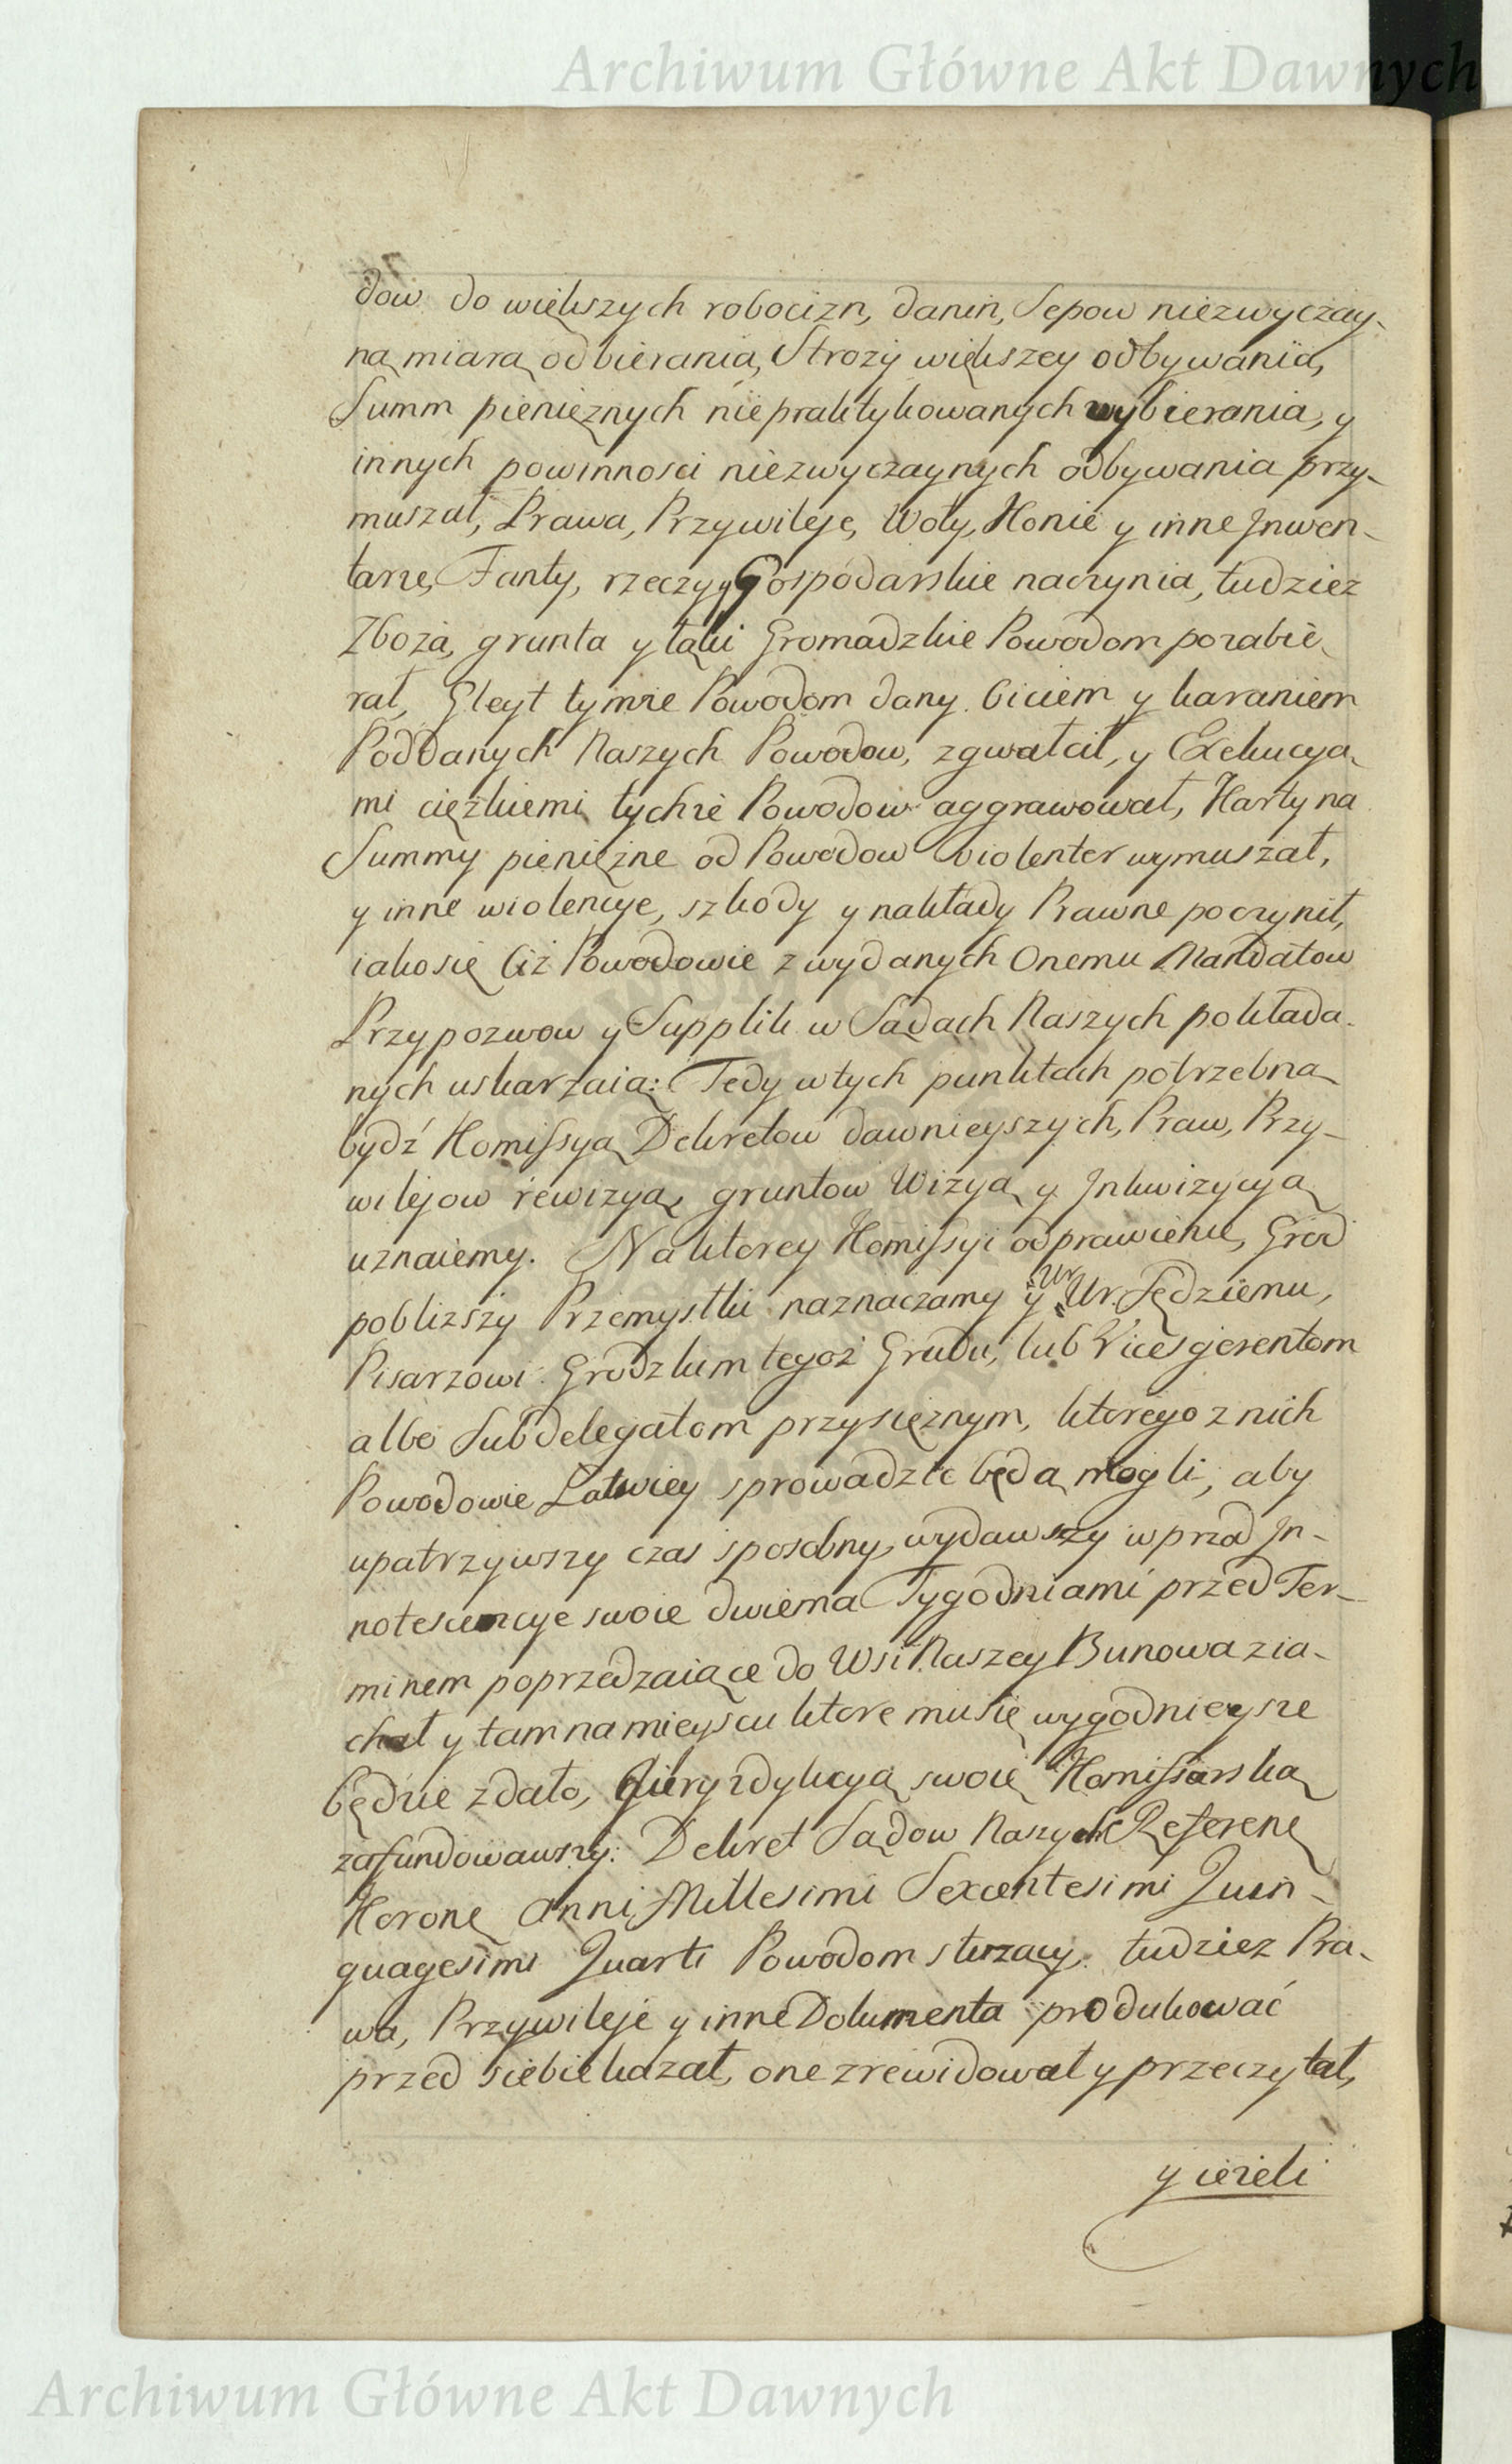 Archiwum Główne Akt Dawnych
dow do większych robocizn, danin, Sepow niezwyczay-
ną miarą odbierania, Stroży większey odbywania,
Summ pienięznych niepraktykowanych wybierania, y
innych powinnosci niezwyczaynych odbywania przy-
muszał, Prawa, Przywileje, Woły, Konie y inne Jnwen-
tarze, Fanty, rzeczy y Gospodarskie naczynia, tudziez
Zboża, grunta y łąki Gromadzkie Powodom pozabie-
rał, Gleyt tymże Powodom dany biciem y karaniem
Poddanych Naszych Powodow, zgwałcił, y Exekucya-
mi cięzkiemi tychże Powodow aggrawował, Karty na
Summy pieniężne od Powodow violenter wymuszał,
y inne wiolencye, szkody y nakłady Prawne poczynił,
iako się Ciż Powodowie z wydanych Onemu Mandatow
Przypozwow y Supplik w Sądach Naszych pokłada-
nych uskarzaią: Tedy w tych punktach potrzebną
bydź Komissyą Dekretow dawnieyszych, Praw, Przy-
wilejow rewizyą, gruntow Wizyą y Jnkwizycyą
uznaiemy. Na ktorey Komissyi odprawienie, Grod
poblizszy Przemyslki naznaczamy y Ur. Ur. Sędziemu,
Pisarzowi Grodzkim tegoż Grodu, lub Vicesgerentom
albo Subdelegatom przysięznym, ktorego z nich
Powodowie Łatwiey sprowadzic będą mogli, aby
upatrzywszy czas sposobny, wydawszy wprzod Jn-
notescencye swoie dwiema Tygodniami przed Ter-
minem poprzedzaiące do Wsi Naszey Bunowa zia-
chał y tam na mieyscu ktore mu się wygodnieysze
będzie zdało, Jiuryzdykcyą swoię Komissarską
zafundowawszy. Dekret Sądow Naszych Referen
Koronę Anni Millesimi Sexcentesimi Quin-
quagesimi Quarti Powodom służący. tudziez Pra-
wa, Przywileje y inne Dokumenta produkować
przed siebie kazał, one zrewidował y przeczytał,
y ieżeli
Archiwum Główne Akt Dawnych